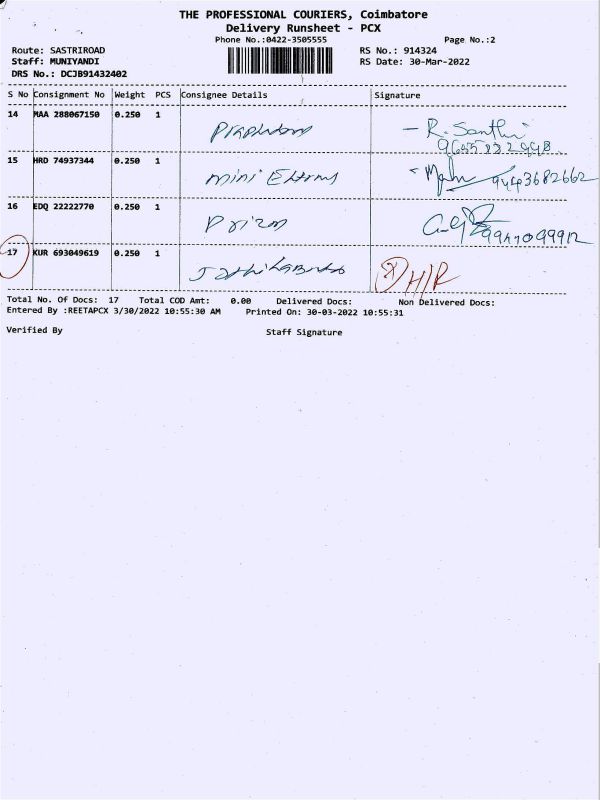 THE PROFESSIONAL COURIERS, Coimbatore
Delivery Runsheet - PCX
Phone No.:0422-3505555 Page No.:2
Route: SASTRIROAD RS No.: 914324
Staff: MUNIYANDI RS Date: 30-Mar-2022
DRS No.: DCJB91432402
S No Consignment No Weight PCS Consignee Details Signature
14 MAA 288067150 0.250 1
R. Santhi
15 HRD 74937344 0.250 1 mini 9443682662
16 EDQ 22222770 0.250 1
17 KUR 693049619 0.250 1
Total No. Of Docs: 17 Total COD Amt: 0.00 Delivered Docs: Non Delivered Docs:
Entered By :REETAPCX 3/30/2022 10:55:30 AM Printed On: 30-03-2022 10:55:31
Verified By Staff Signature